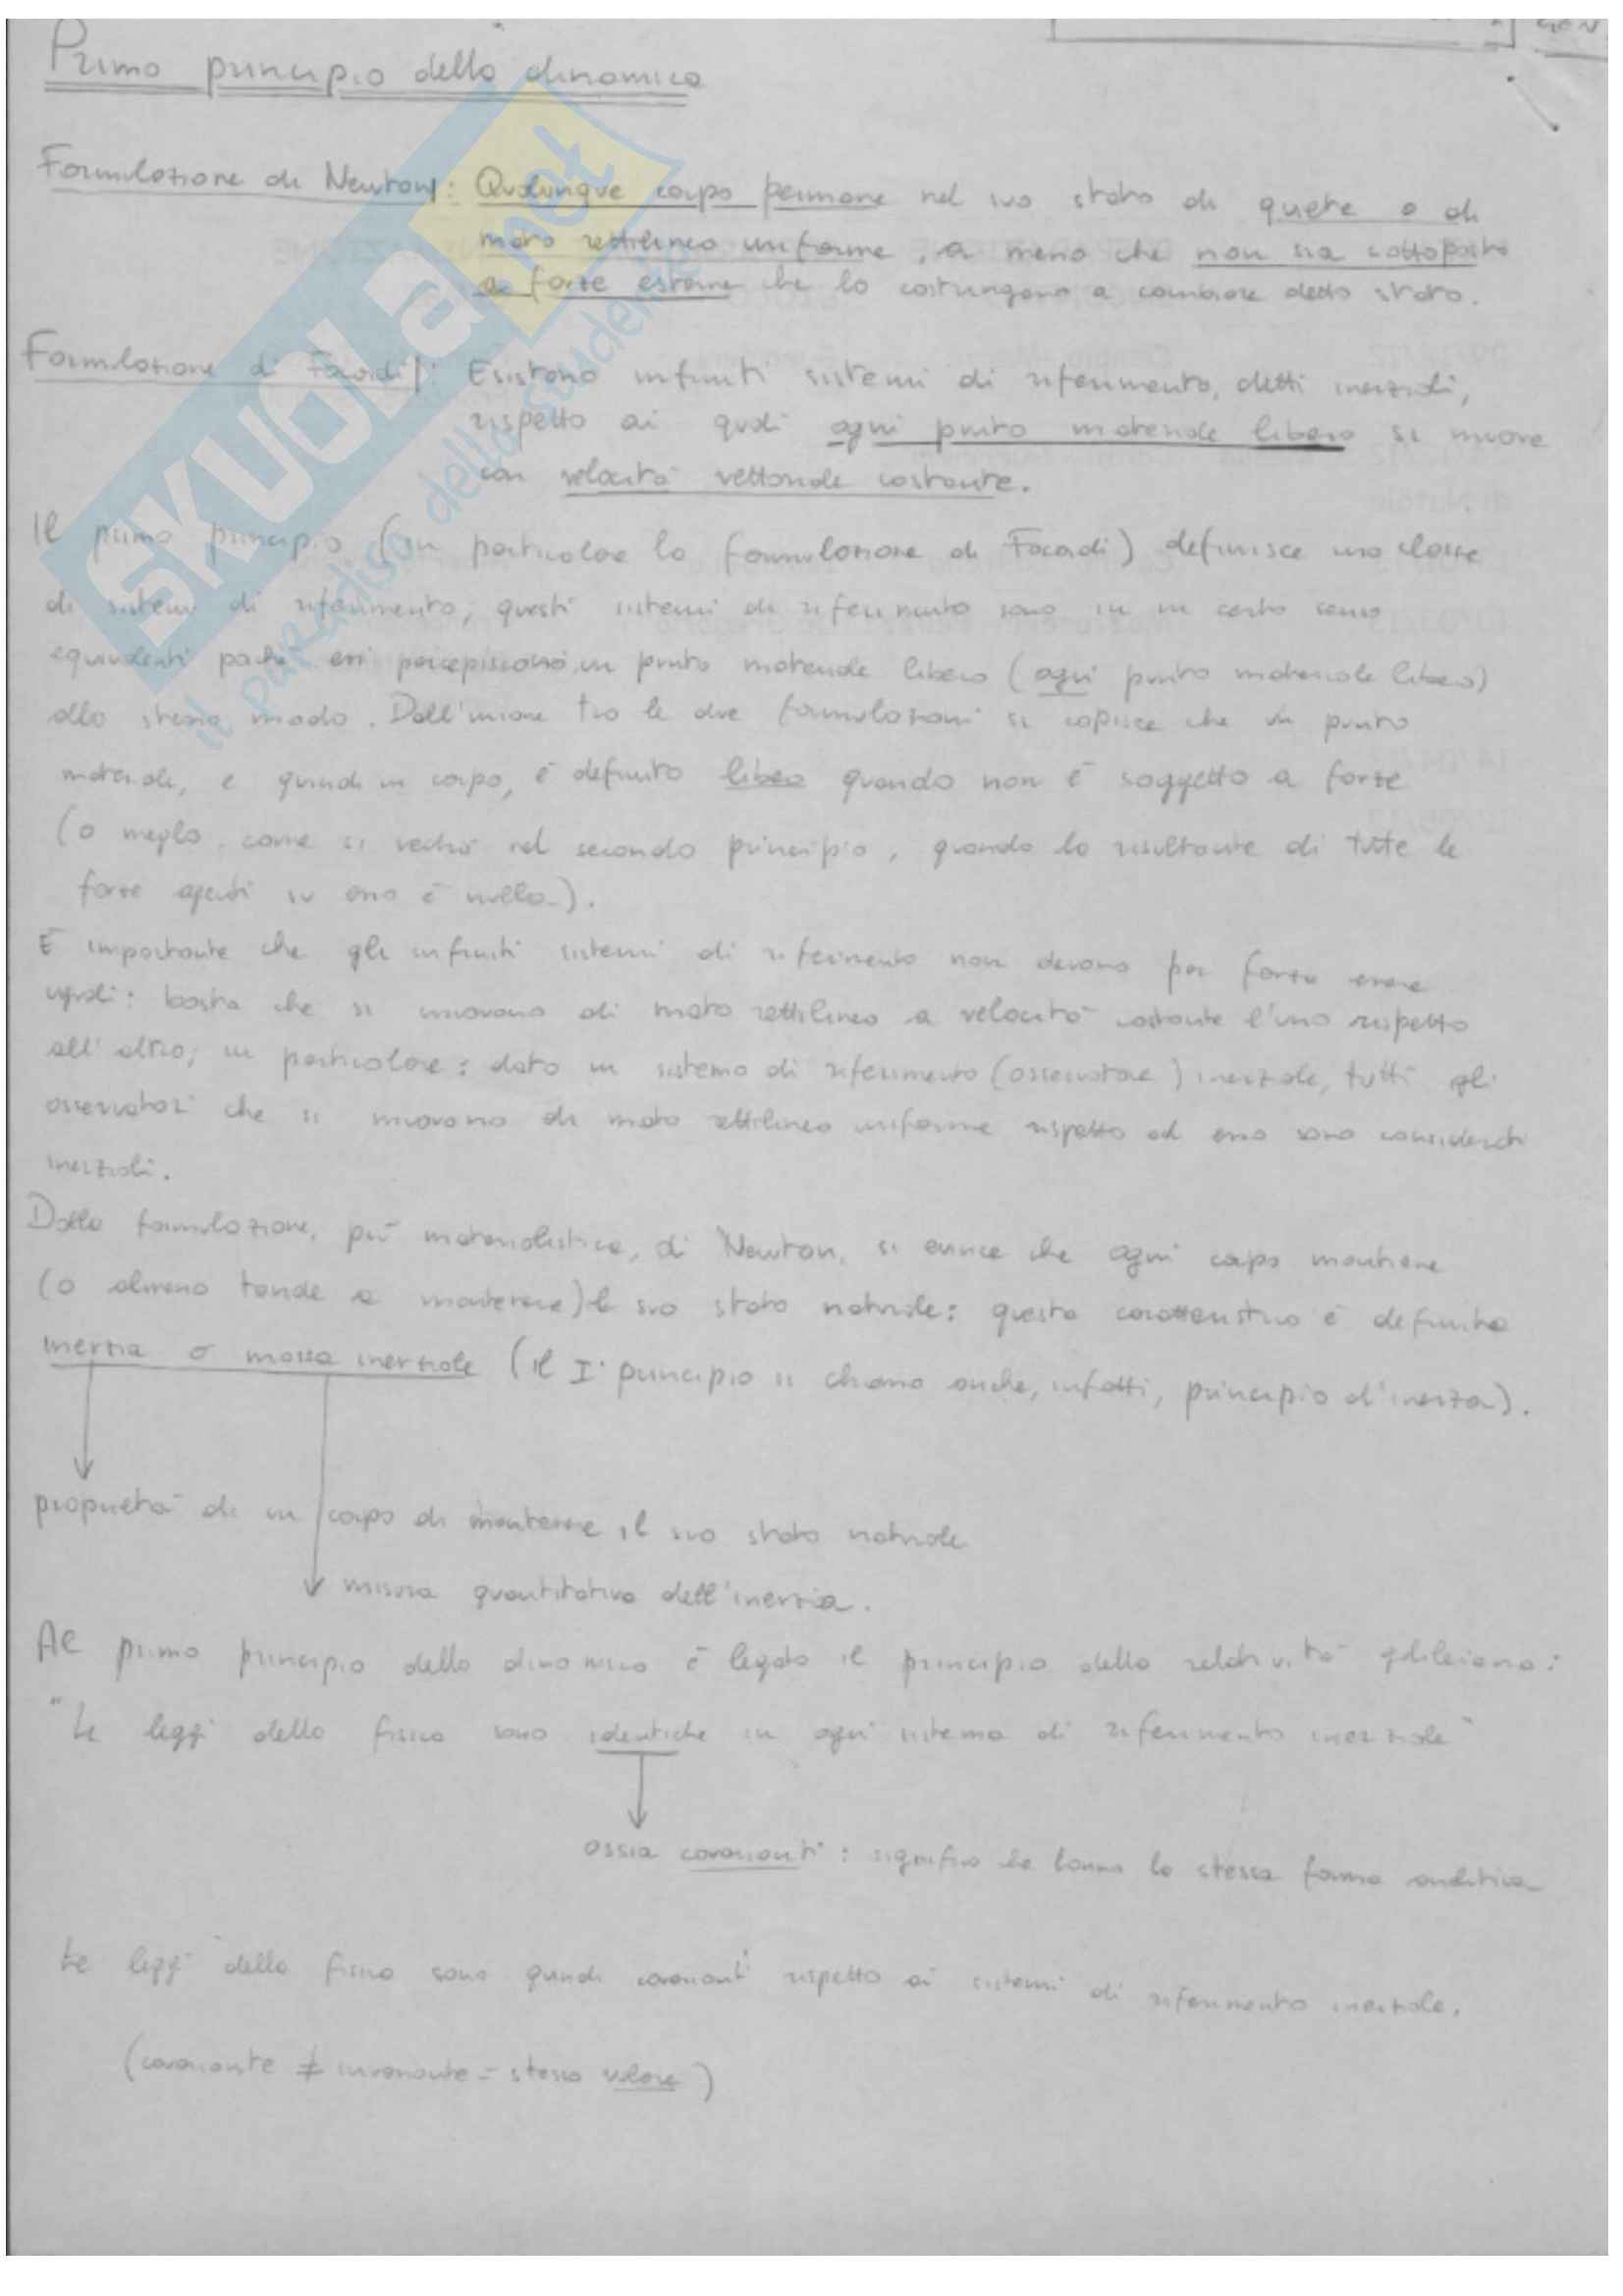 Primo principio della dinamica
Formulazione di Newton: Qualunque corpo permane nel suo stato di quiete o di
moto rettilineo uniforme, a meno che non sia sottoposto
a forze esterne che lo costringano a cambiare detto stato.
Formulazione di Focardi: Esistono infiniti sistemi di riferimento, detti inerziali,
rispetto ai quali ogni punto materiale libero si muove
con velocità vettoriale costante.
Il primo principio (in particolare la formulazione di Focardi) definisce una classe
di sistemi di riferimento; questi sistemi di riferimento sono in un certo senso
equivalenti poiché essi percepiscono un punto materiale libero (ogni punto materiale libero)
allo stesso modo. Dall'unione tra le due formulazioni si capisce che un punto
materiale, e quindi un corpo, è definito libero quando non è soggetto a forze
(o meglio, come si vedrà nel secondo principio, quando la risultante di tutte le
forze agenti su esso è nulla).
È importante che gli infiniti sistemi di riferimento non devono per forza essere
uguali: basta che si muovano di moto rettilineo a velocità costante l'uno rispetto
all'altro; in particolare: dato un sistema di riferimento (osservatore) inerziale, tutti gli
osservatori che si muovono di moto rettilineo uniforme rispetto ad esso sono considerati
inerziali.
Dalla formulazione, più materialistica, di Newton, si evince che ogni corpo mantiene
(o almeno tende a mantenere) il suo stato naturale: questa caratteristica è definita
inerzia o massa inerziale (il I° principio si chiama anche, infatti, principio d'inerzia).
proprietà di un corpo di mantenere il suo stato naturale
misura quantitativa dell'inerzia.
Al primo principio della dinamica è legato il principio della relatività galileiana:
"Le leggi della fisica sono identiche in ogni sistema di riferimento inerziale"
ossia covarianti: significa che hanno la stessa forma analitica
Le leggi della fisica sono quindi covarianti rispetto ai sistemi di riferimento inerziale.
(covariante ≠ invariante = stesso valore)
SKUOLA.net
il paradiso dello studente